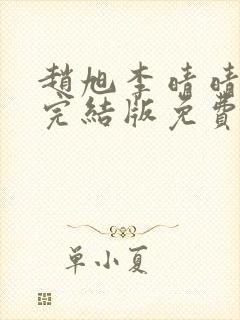 趙旭李晴晴
完結版免費
單小夏